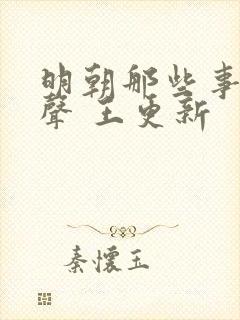 明朝那些事
聲 王更新
秦懷玉